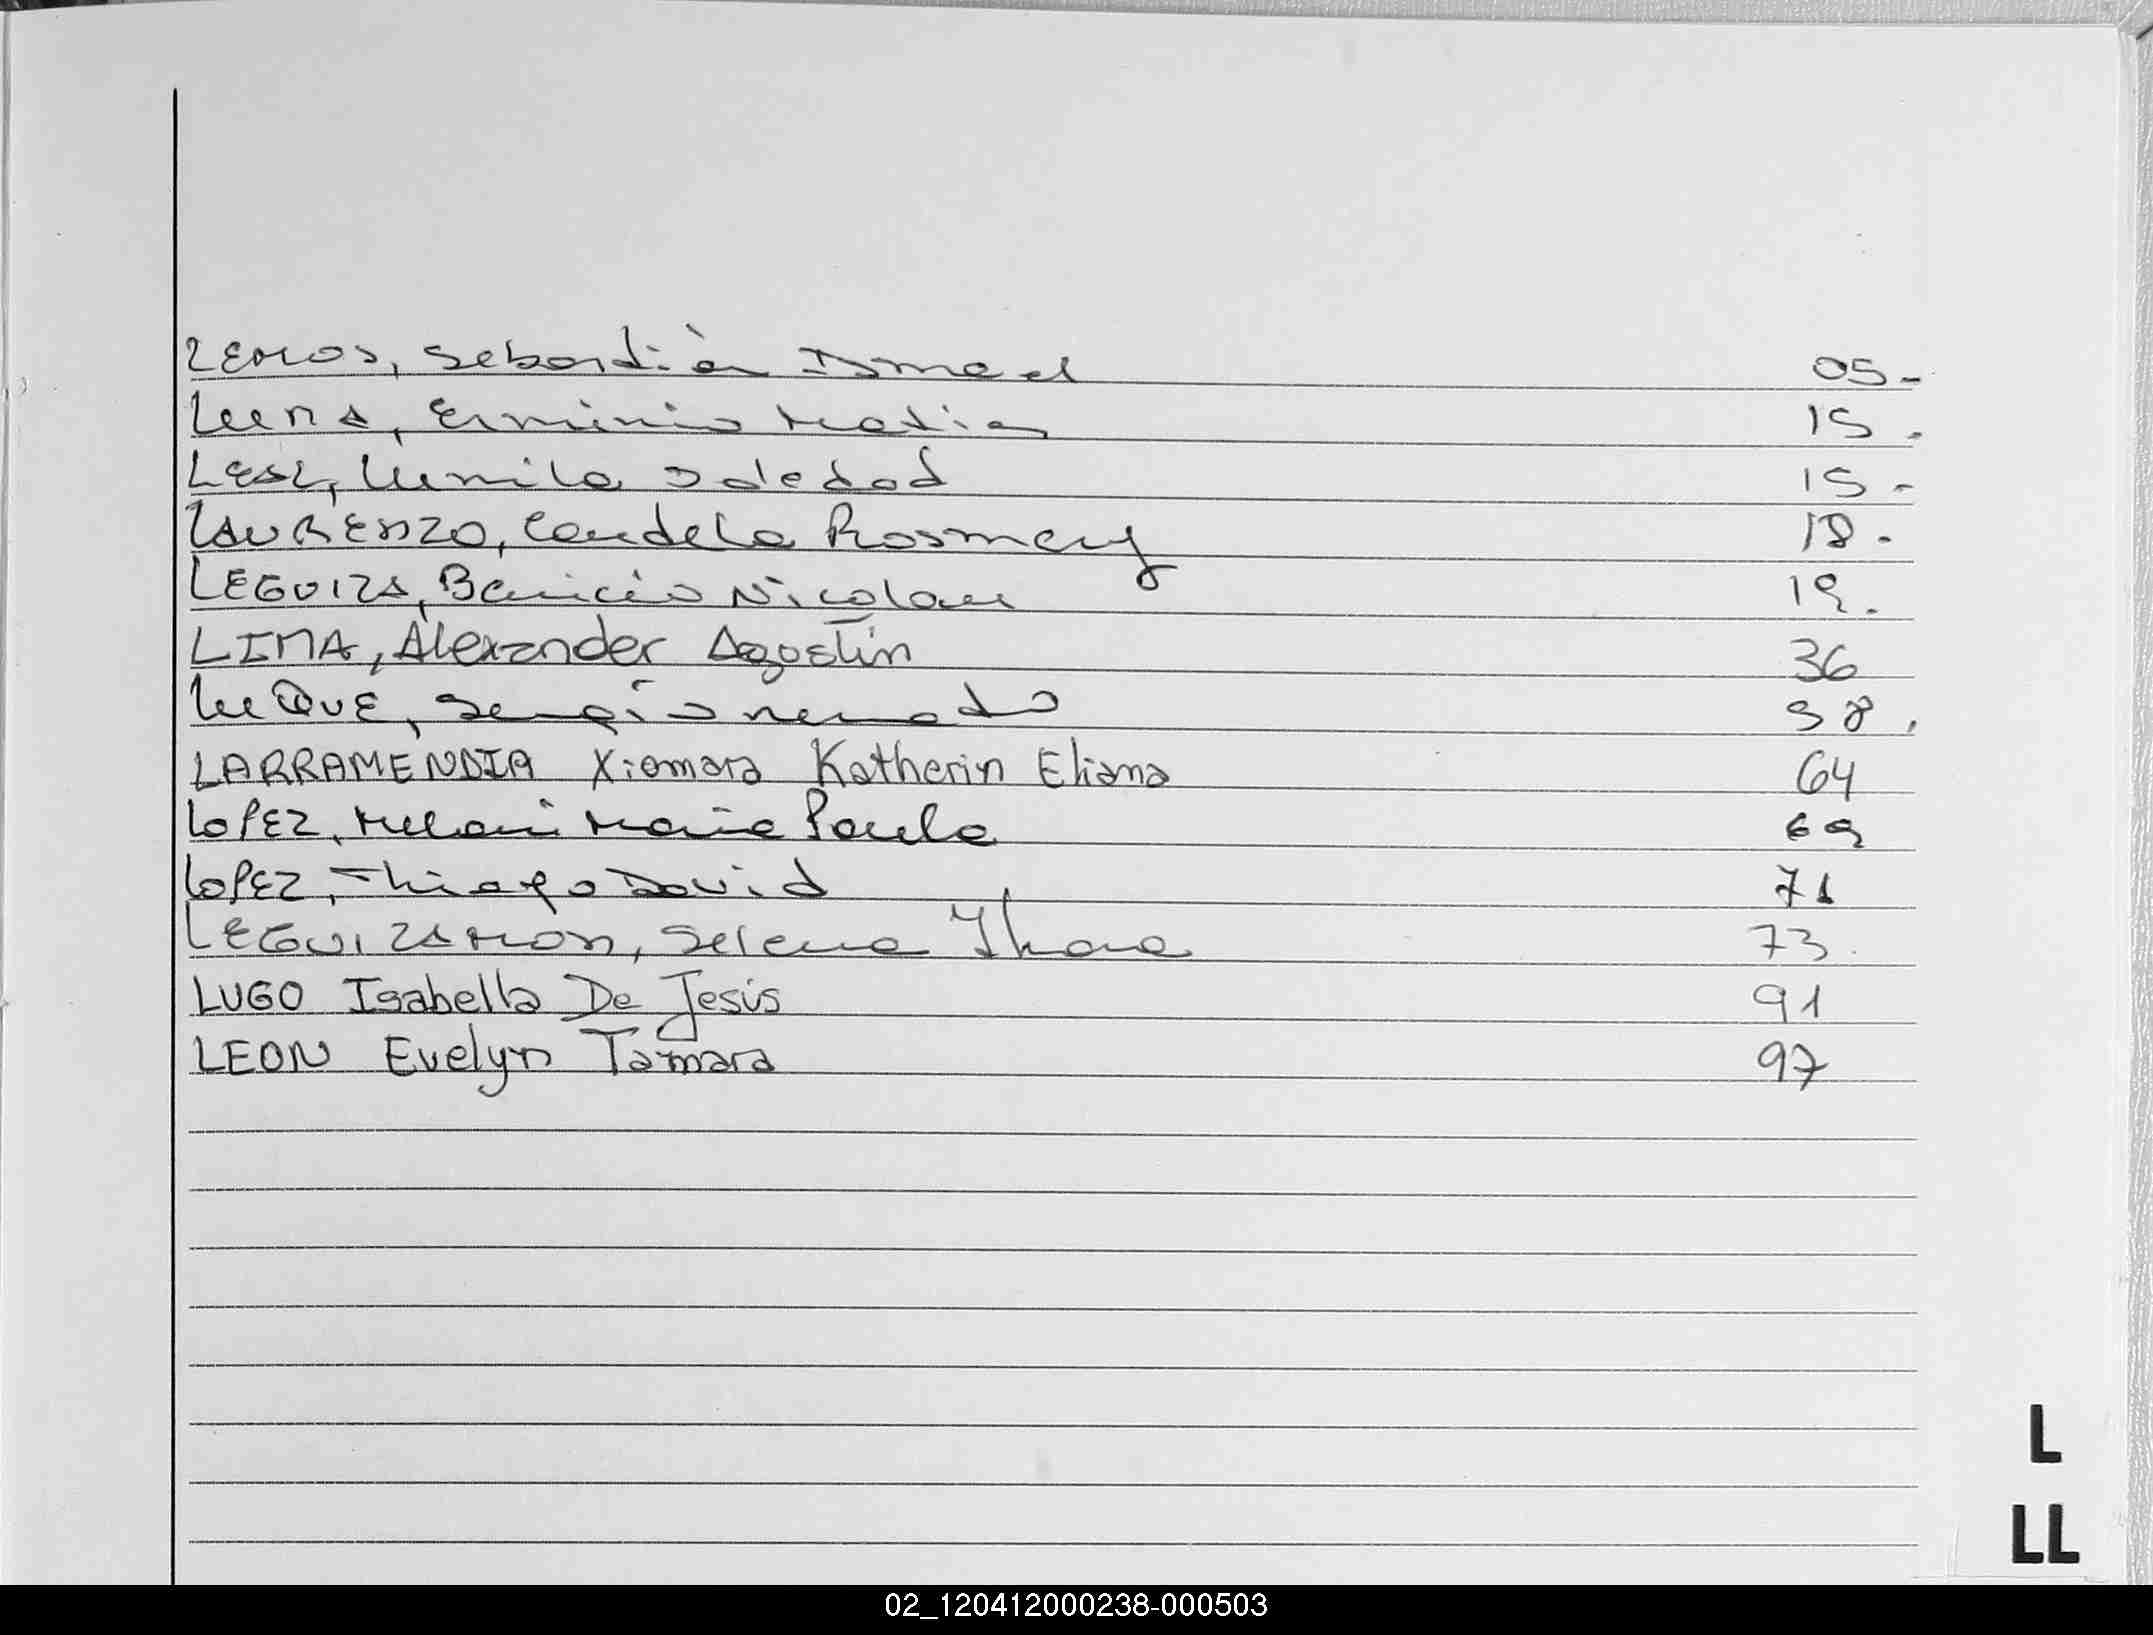 LEMOS, Sebastián Ismael 05-
Luna, Erminio Matias 15.
LEAL, Camila Soledad 15-
LAURENZO, Candela Rosmery 18.
LEGUIZA, Benicio Nicolas 19.
LIMA, Alexander Agostín 36
LUQUE, Sergio 38.
LARRAMENDIA Xiomara Katherin Eliana 64
LOPEZ, Melani Maria Paula 69
LOPEZ, Thiago David 71
LEGUIZAMON, Selena 73.
LUGO Isabella De Jesús 91
LEON Evelyn Tamara 97
L
LL
02_120412000238-000503